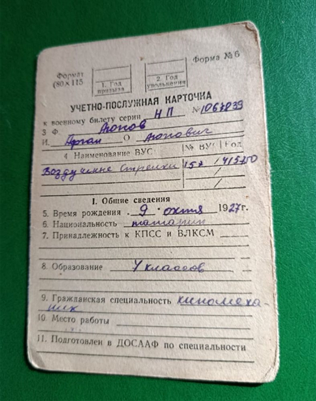 Формат
(80×115
Форма № 6
1. Год
призыва
2. Год
увольнения
УЧЕТНО-ПОСЛУЖНАЯ КАРТОЧКА
к военному билету серии НП №
3 Ф. Аюпов
И. О. Аюпович
4 Наименование ВУС № ВУС Код
Воздушные стрелки
I. Общие сведения
5. Время рождения 9 октя 1927 г.
6. Национальность татарин
7. Принадлежность к КПСС и ВЛКСМ
8. Образование 4 классов
9. Гражданская специальность киномеха-
ник
10. Место работы
11. Подготовлен в ДОСААФ по специальности